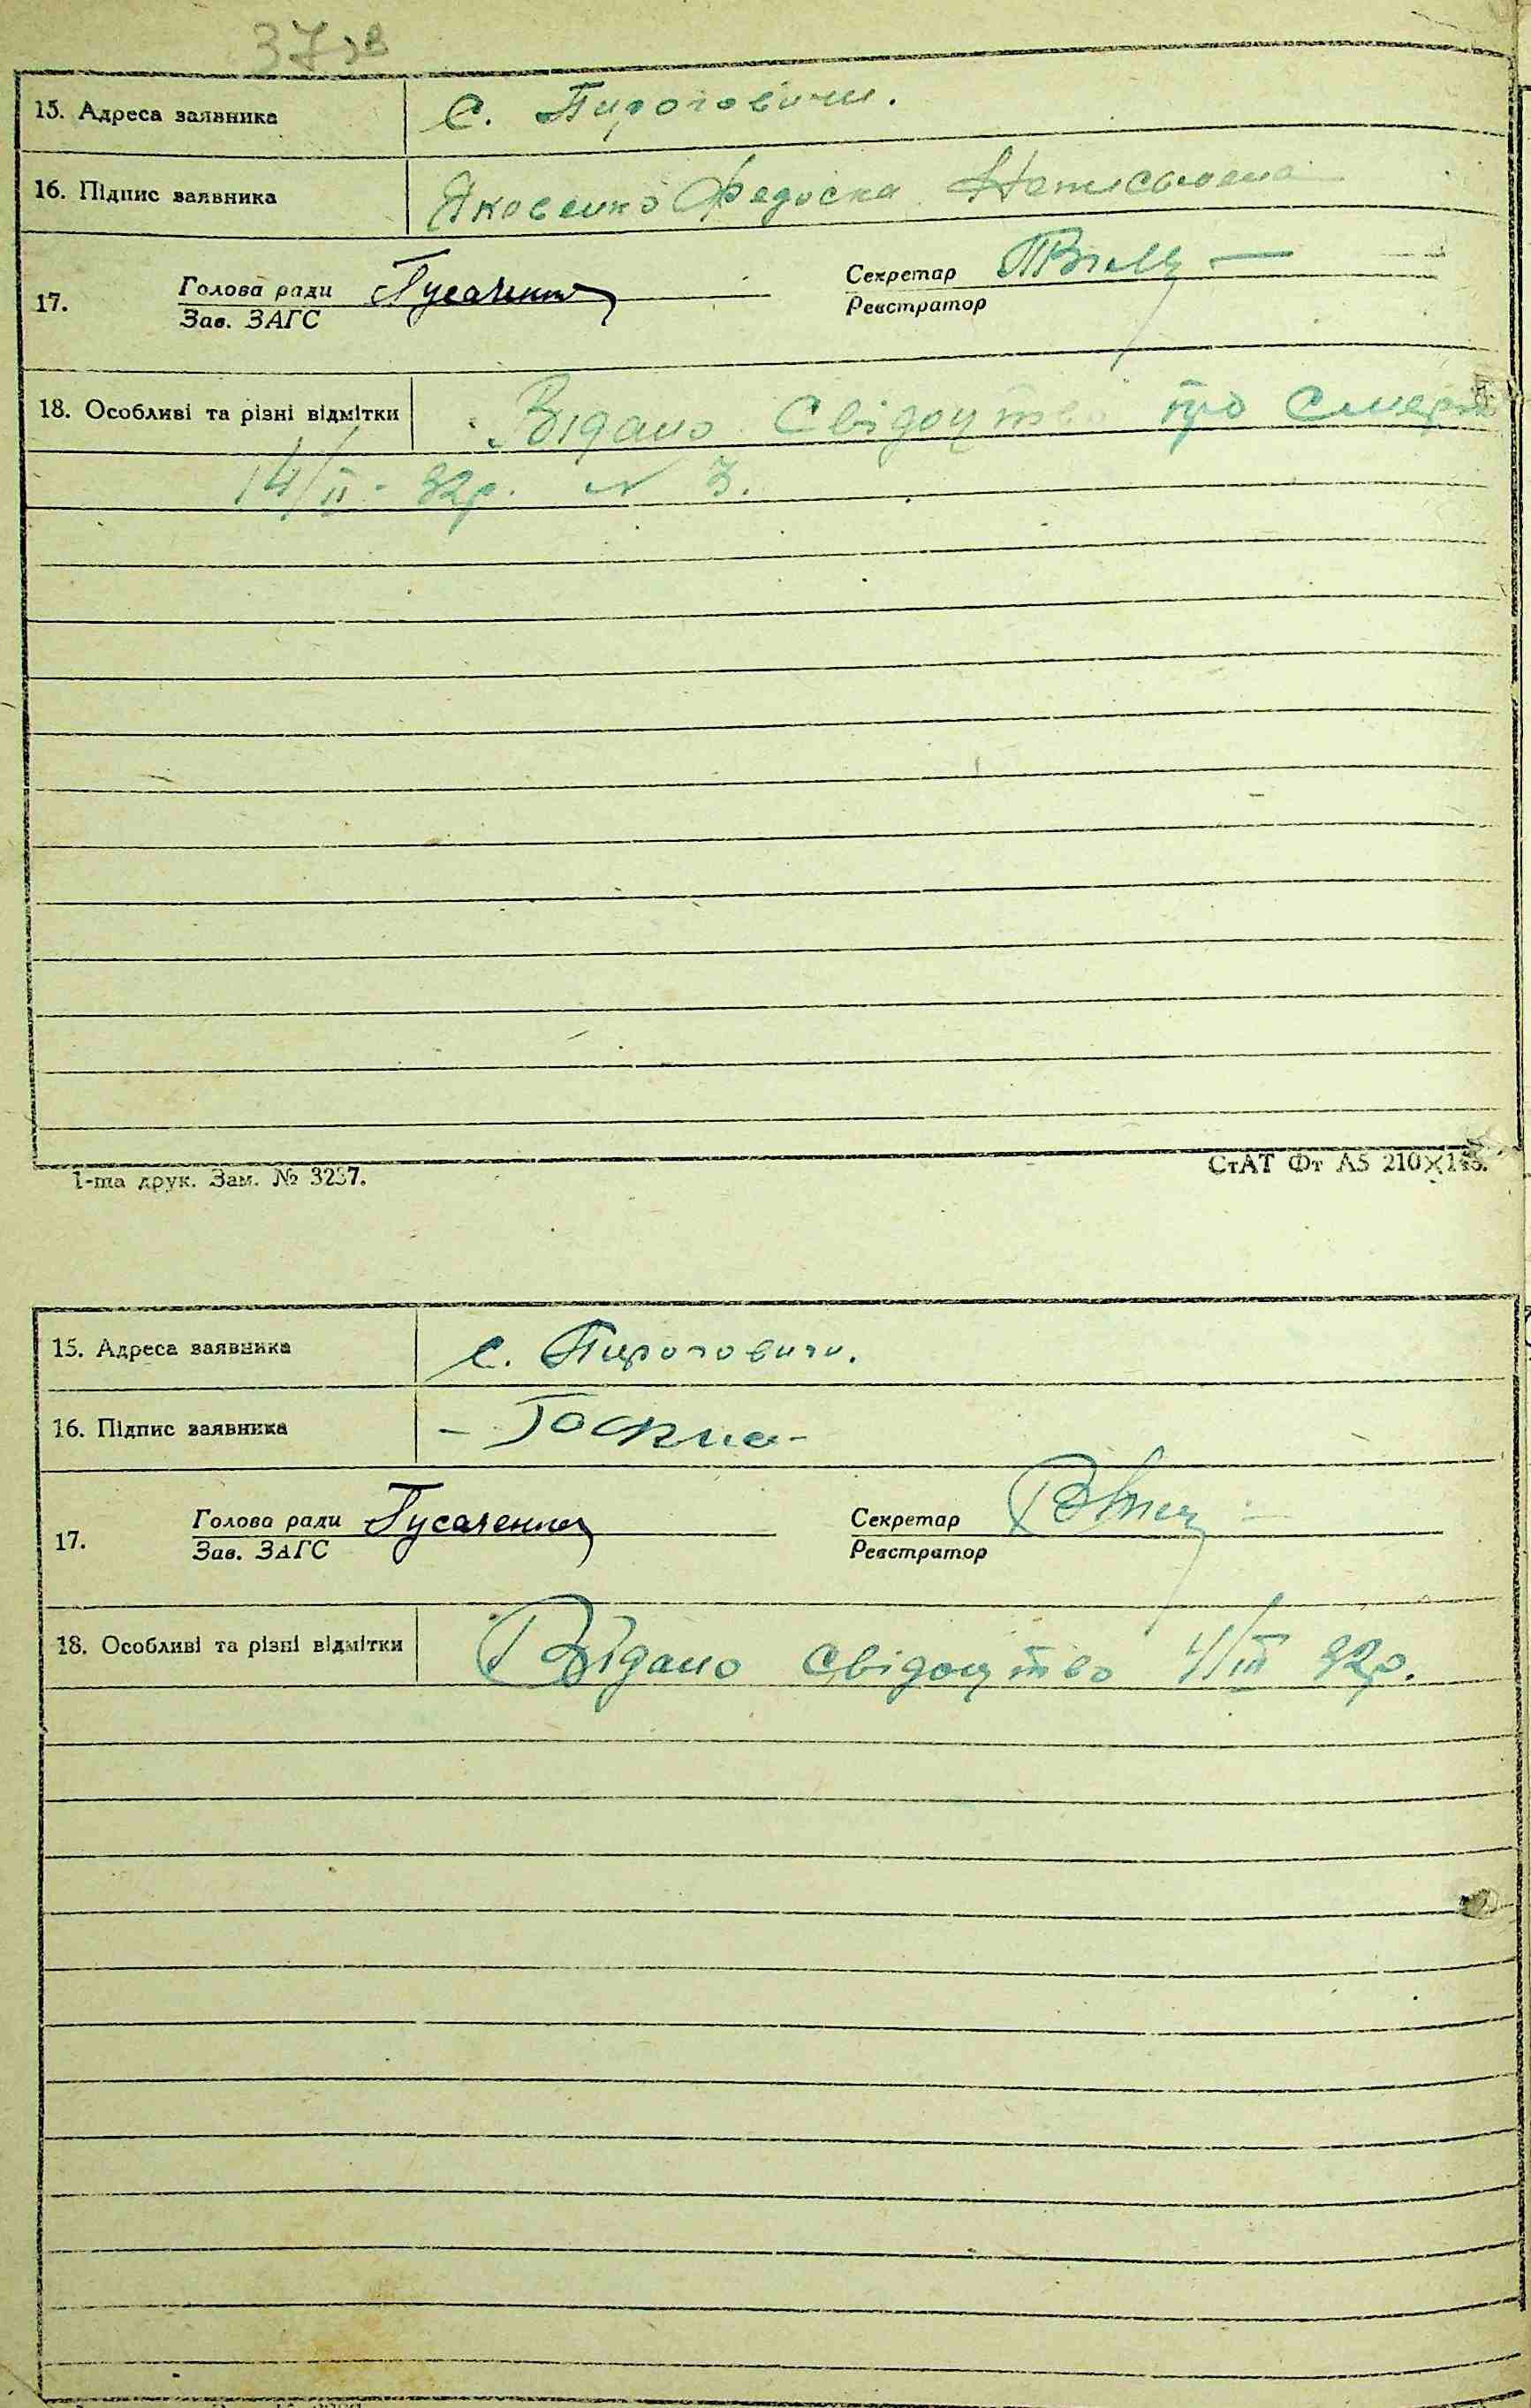 37зв
15. Адреса заявника С. Пироговичи.
16. Підпис заявника Яковенко Федоска
17. Голова ради Гусаченко Секретар
Зав. ЗАГС Реєстратор
18. Особливі та різні відмітки Видано Свідоцтво про смерть
14/II - 32р. N 3.
1-ша друк. Зам. № 3237.
СтАТ Фт А5 210×148.
15. Адреса заявника с. Пироговичи.
16. Підпис заявника
17. Голова ради Гусаченко Секретар
Зав. ЗАГС Реєстратор
18. Особливі та різні відмітки Видано свідоцтво 4/III 32р.